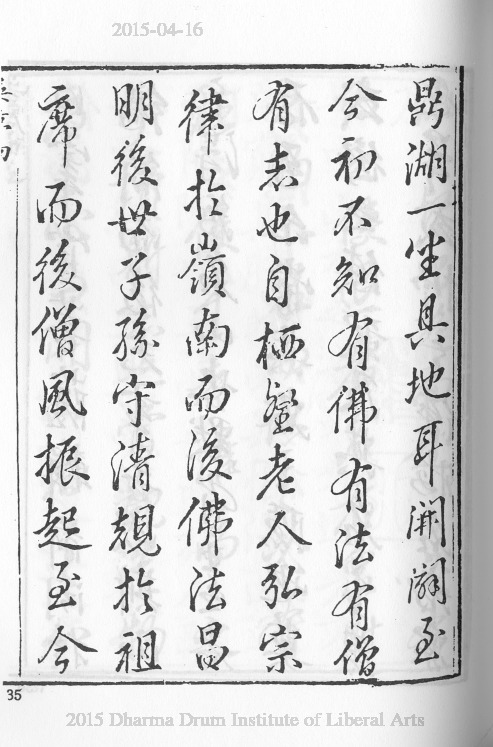 2015-04-16
鼎湖一坐具地耳開闢至
今初不知有佛有法有僧
有志也自栖壑老人弘宗
律於嶺南而後佛法昌
明後世子孫守清規於祖
席而後僧風振起至今
35
2015 Dharma Drum Institute of Liberal Arts